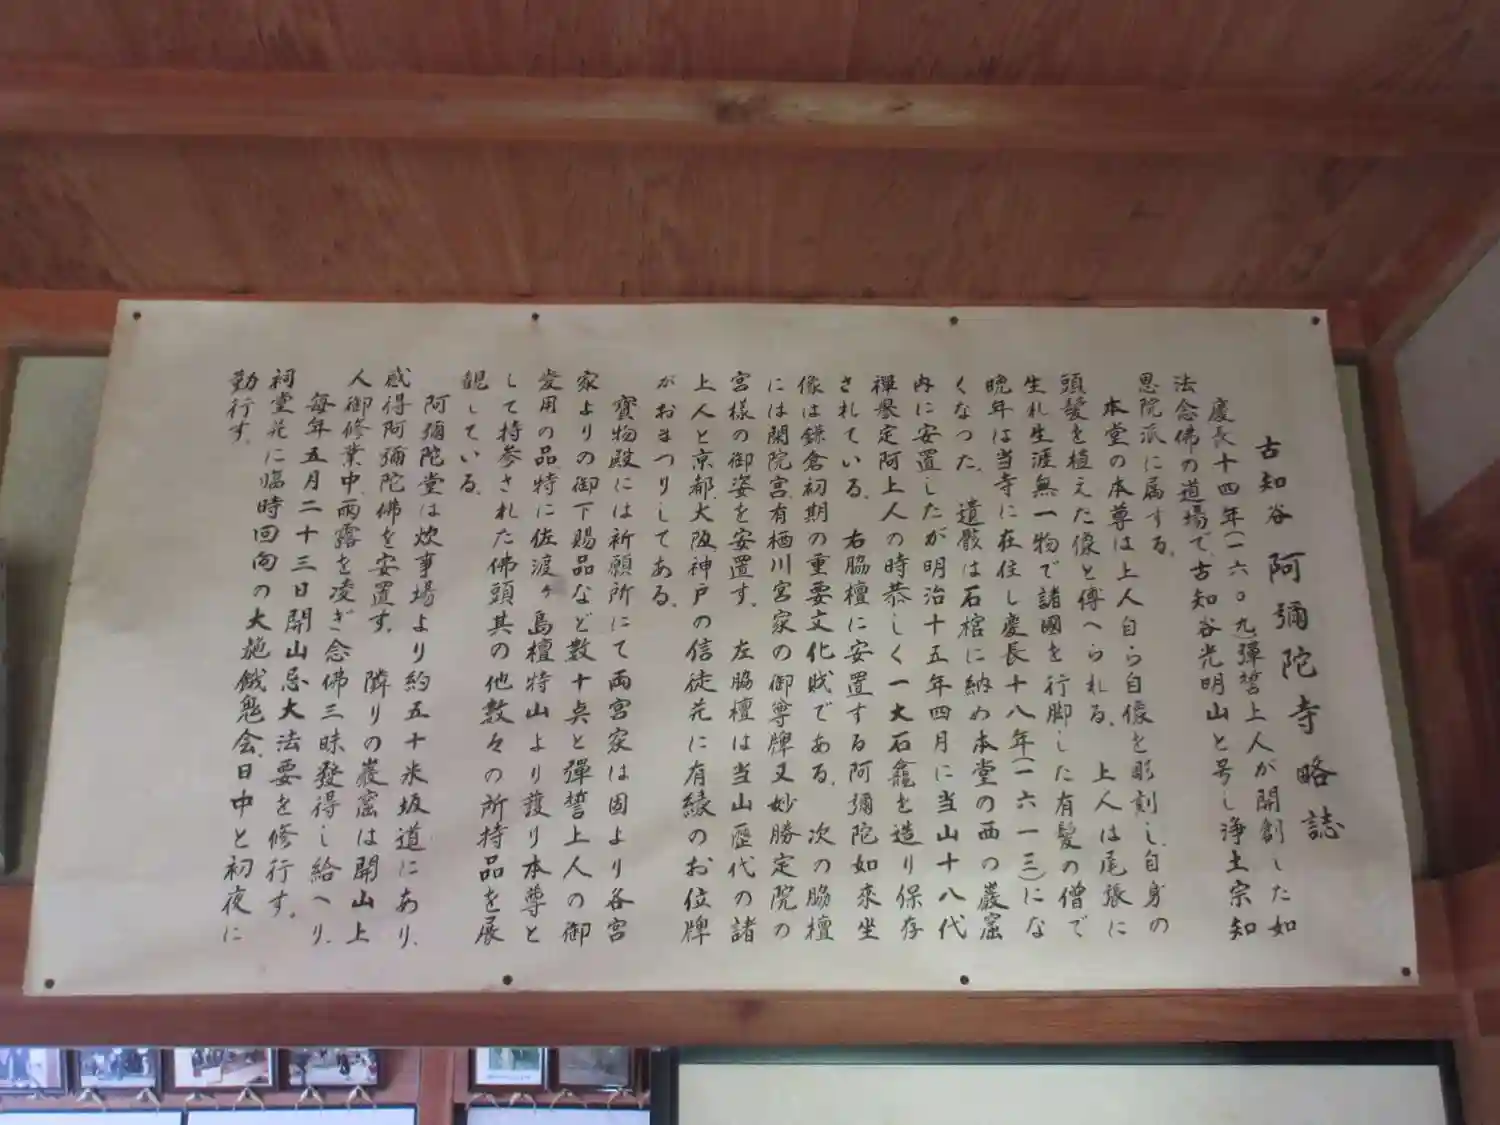 古知谷 阿彌陀寺略誌
慶長十四年(一六〇九)彈誓上人が開創した如
法念佛の道場で、古知谷光明山と号し浄土宗知
恩院派に属する。
本堂の本尊は上人自ら自像を彫刻し、自身の
頭髪を植えた像と傳へられる。上人は尾張に
生れ生涯無一物で諸國を行脚した有髪の僧で
晩年は当寺に在住し慶長十八年(一六一三)にな
くなつた。遺骸は石棺に納め本堂の西の巖窟
内に安置したが明治十五年四月に当山十八代
禪譽定阿上人の時恭しく一大石龕を造り保存
されている。右脇檀に安置する阿彌陀如來坐
像は鎌倉初期の重要文化財である。次の脇檀
には閑院宮、有栖川宮家の御尊牌又妙勝定院の
宮様の御姿を安置す。左脇檀は当山歴代の諸
上人と京都、大阪神戸の信徒芫に有縁のお位牌
がおまつりしてある。
寳物殿には祈願所にて両宮家は固より各宮
家よりの御下賜品など数十点と彈誓上人の御
愛用の品、特に佐渡ヶ島檀特山より護り本尊と
して持参された佛頭其の他数々の所持品を展
観している。
阿彌陀堂は炊事場より約五十米坂道にあり、
感得阿彌陀佛を安置す。隣りの巖窟は開山上
人御修業中、雨露を凌ぎ念佛三昧發得し給へり。
毎年五月二十三日開山忌大法要を修行す。
祠堂芫に臨時回向の大施餓鬼会、日中と初夜に
勤行す。